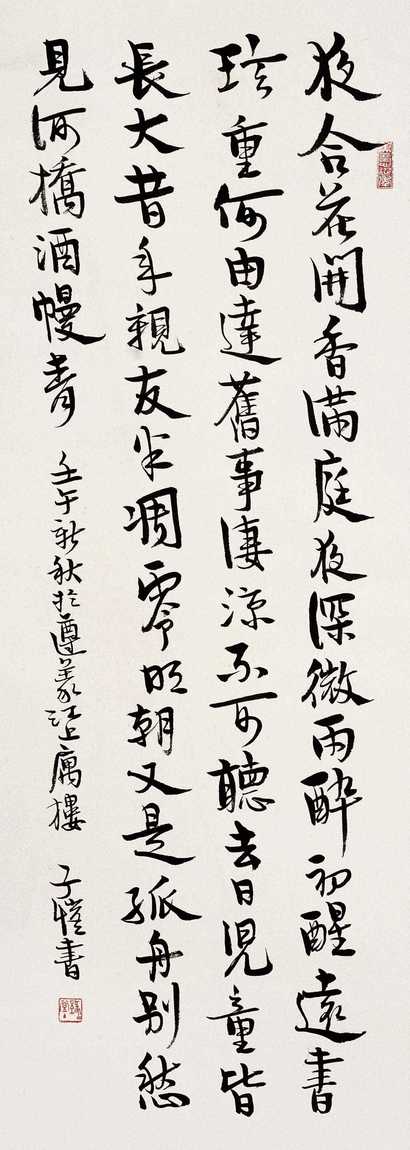 夜合花開香滿庭夜深微雨醉初醒遠書
珍重何由達舊事凄涼不可聽去日兒童皆
長大昔年親友半凋零明朝又是孤舟別愁
見河橋酒幔青 壬午新秋於遵義江上庽樓 子愷書